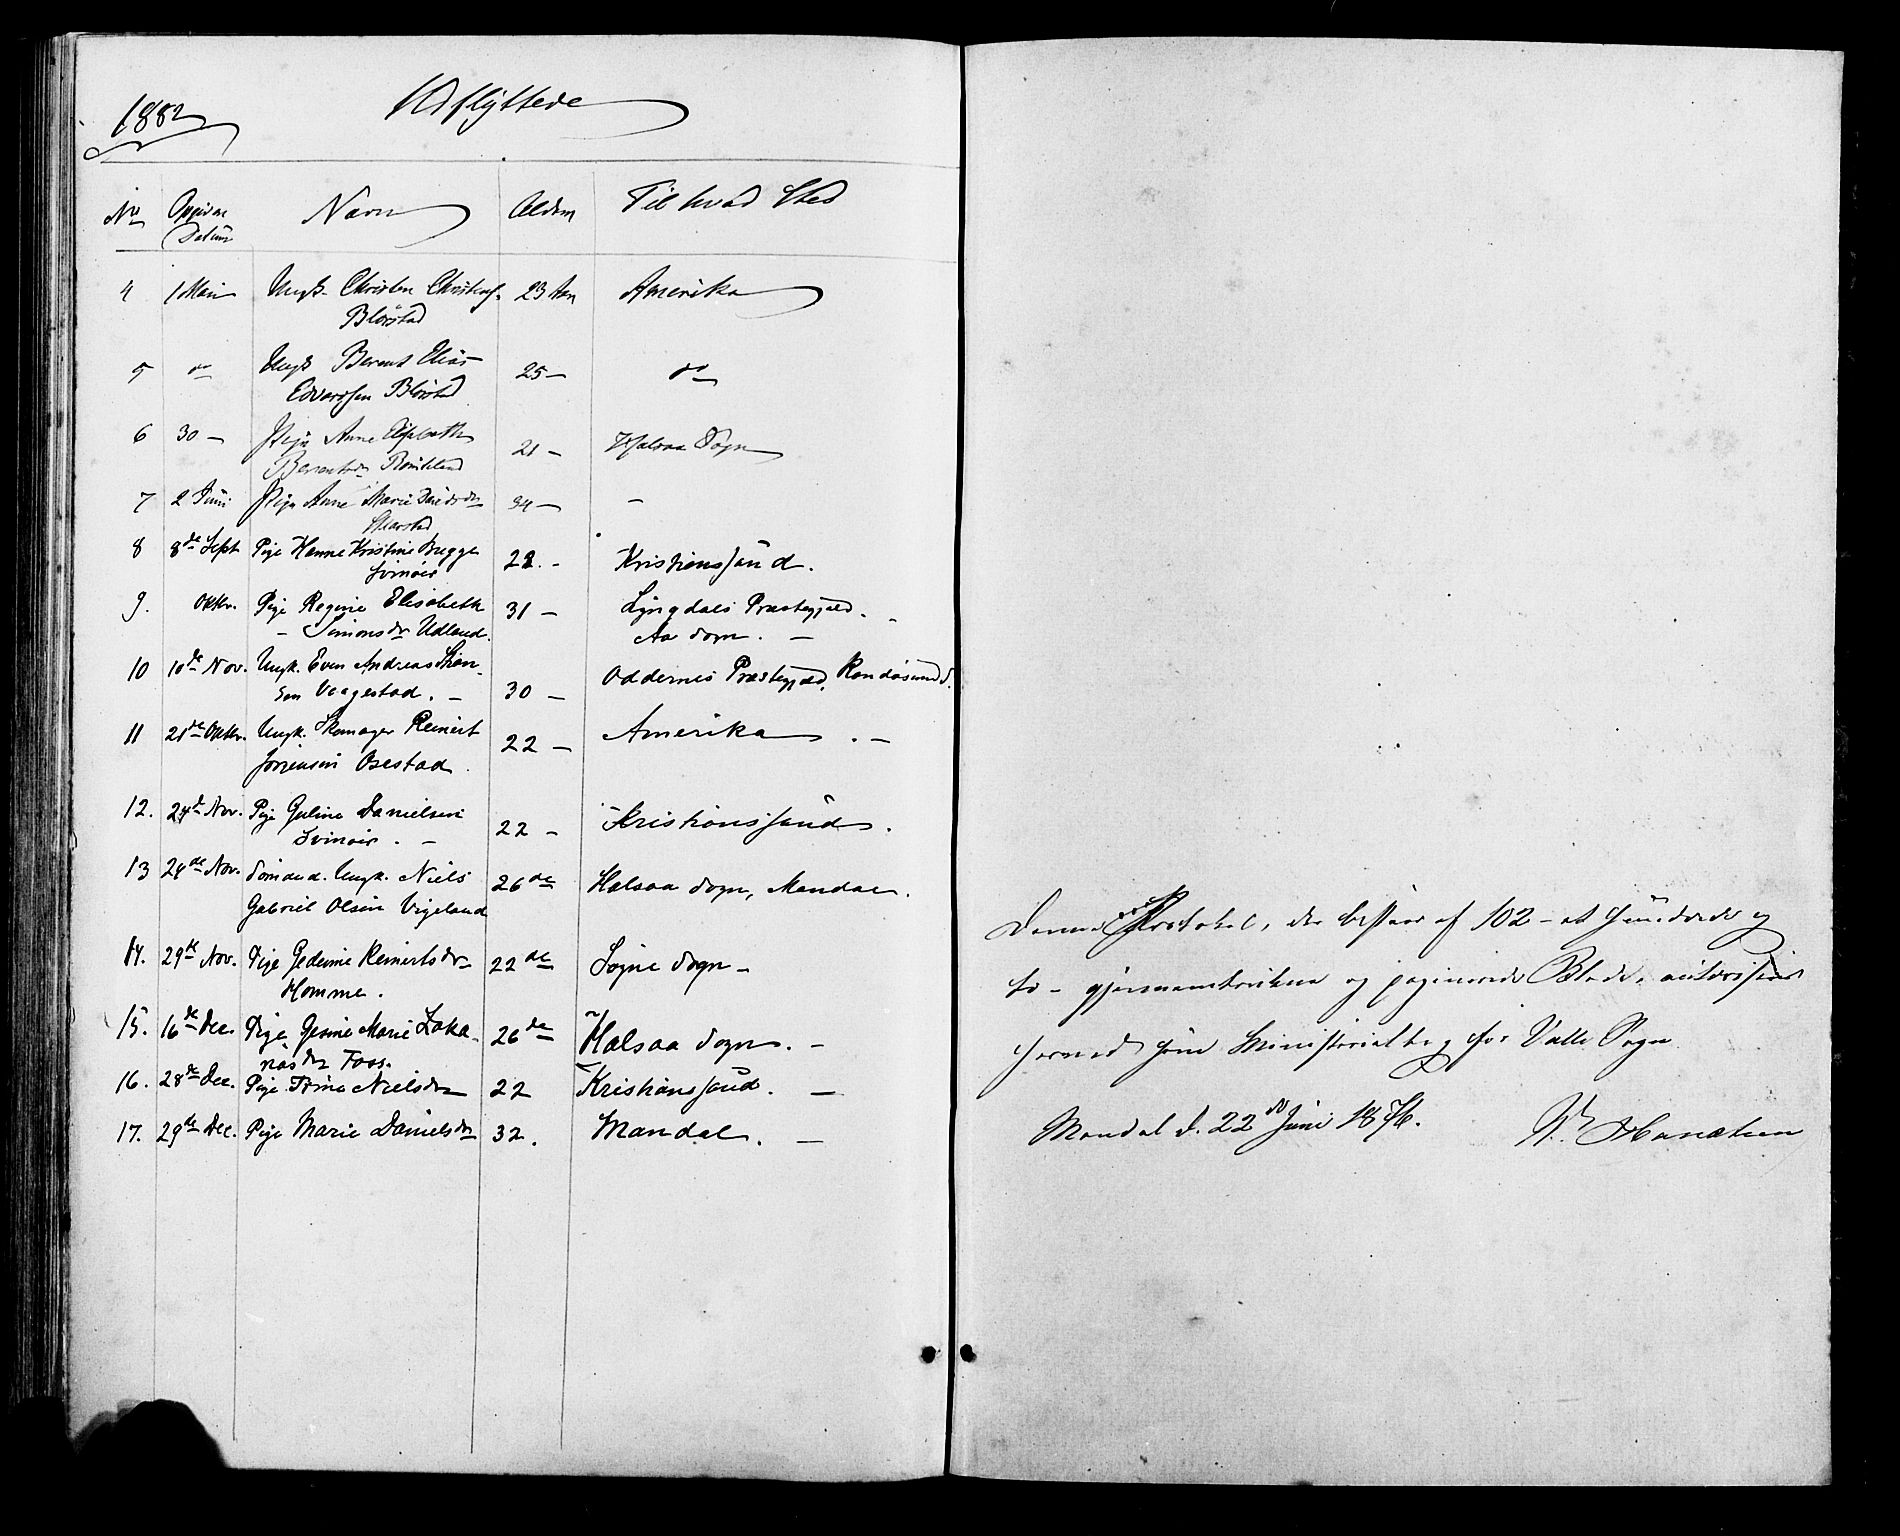 1882
Udflyttede
No Opgivne Datum Navn Alder Til hvad Sted
4 1 Mai Ungk. Christen Christens. 23 Aar Amerika
Blørstad
5 do Ungk Berent Elias 25 – do
Edvardsen Blørstad
6 30 – Pige Anne Elisabeth 21 – Halsaa Sogn
Berentsdr
7 2 Juni Pige Anne Marie Davidsdr 34 – –
8 8de Sept Pige Hanne Kristine Bugge 22. – Kristianssand.
Svinøer
9. Oktbr. Pige Regine Elisabeth 31 – Lyngdals Præstegjeld. –
– Simonsdr Udland. Aa Sogn. –
10 10de Nov. Ungk. Even Andreas
sen Vaagestad. – 30 – Oddernes Præstegjeld, Randøsund.
11 21de Oktbr. Ungk. Skomager Reinert 22 – Amerika . –
Jørgensen Osestad.
12. 24de Nov. Pige Guline Danielsen 22 – Kristianssand.
Svinøer. –
13 24de Nov. Sømand. Ungk. Niels 26de Halsaa Sogn, Mandal.
Gabriel Olsen Vigeland
14. 29de Nov. Pige Gedine Reinertsdr 22de Søgne Sogn –
Homme.
15. 16de Dec. Pige Gesine Marie Zaka- 26de Halsaa Sogn. –
riasdr Foss.
16. 28de Dec. Pige Trine Nielsdr 22 Kristianssand. –
17. 29de Dec. Pige Marie Danielsdr 32. Mandal. –
Denne Protokol, der bestaar af 102 – et Hundrede og
to – gjennemtrukne og paginerede Blade, autoriseres
herved som Ministerialbog for Valle Sogn
Mandal d. 22de Juni 1876.